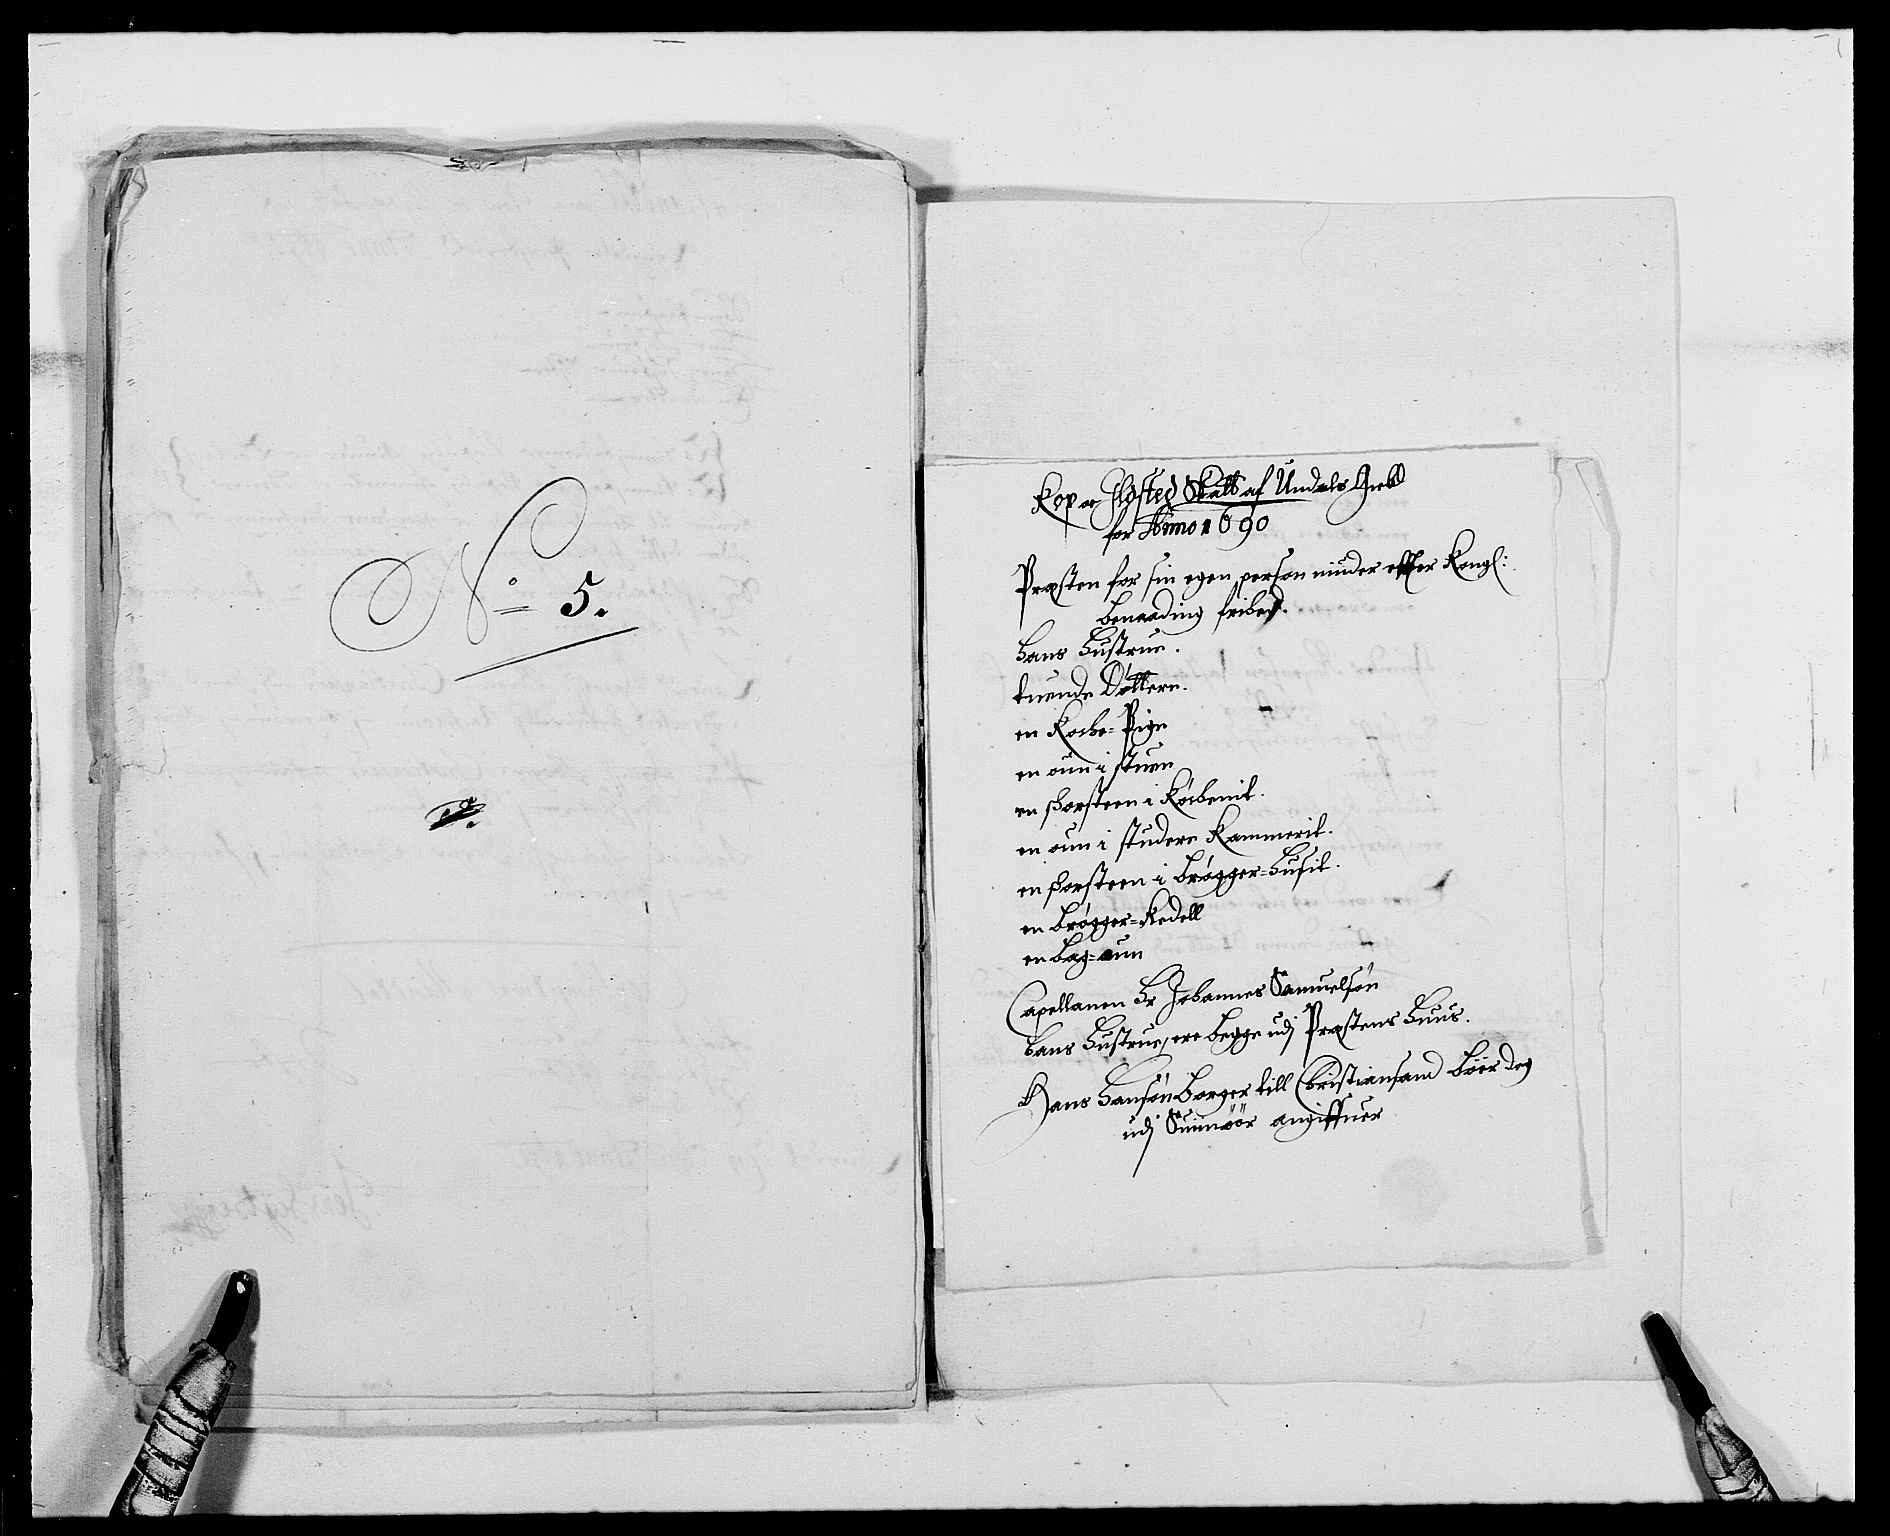 No 5.
Kop oc Ildsted Skatt af Undals Gield
for Anno 1690
Præsten for sin egen person niuder efter Kongl:
benaading frihed.
Hans Hustrue.
tuende Døttere.
en Kocke-Pige
en oun i stuen
en skorsteen i Köckenit.
en oun i studere Kammerit.
en skorsteen i brøgger-Husit.
en brøgger-Kedell
en bag-oun
Capellanen Hr Johannes Samuelsøn
hans Hustrue, ere begge udj Præstens Huus.
Hans Hansøn borger till Christiansand böer dog
udj Suinöör angiffuer